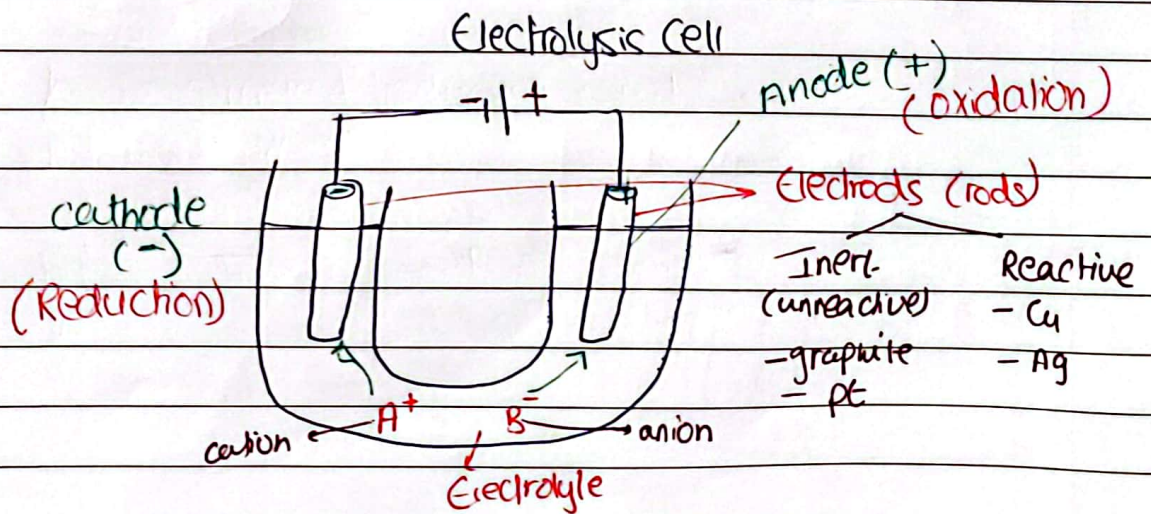 Electrolysis Cell
Anode (+)
(oxidation)
- +
Electrods (rods)
cathode
(-)
(Reduction)
Inert
(unreactive)
- graphite
- pt
Reactive
- Cu
- Ag
A⁺
B⁻
cation
anion
Electrolyte